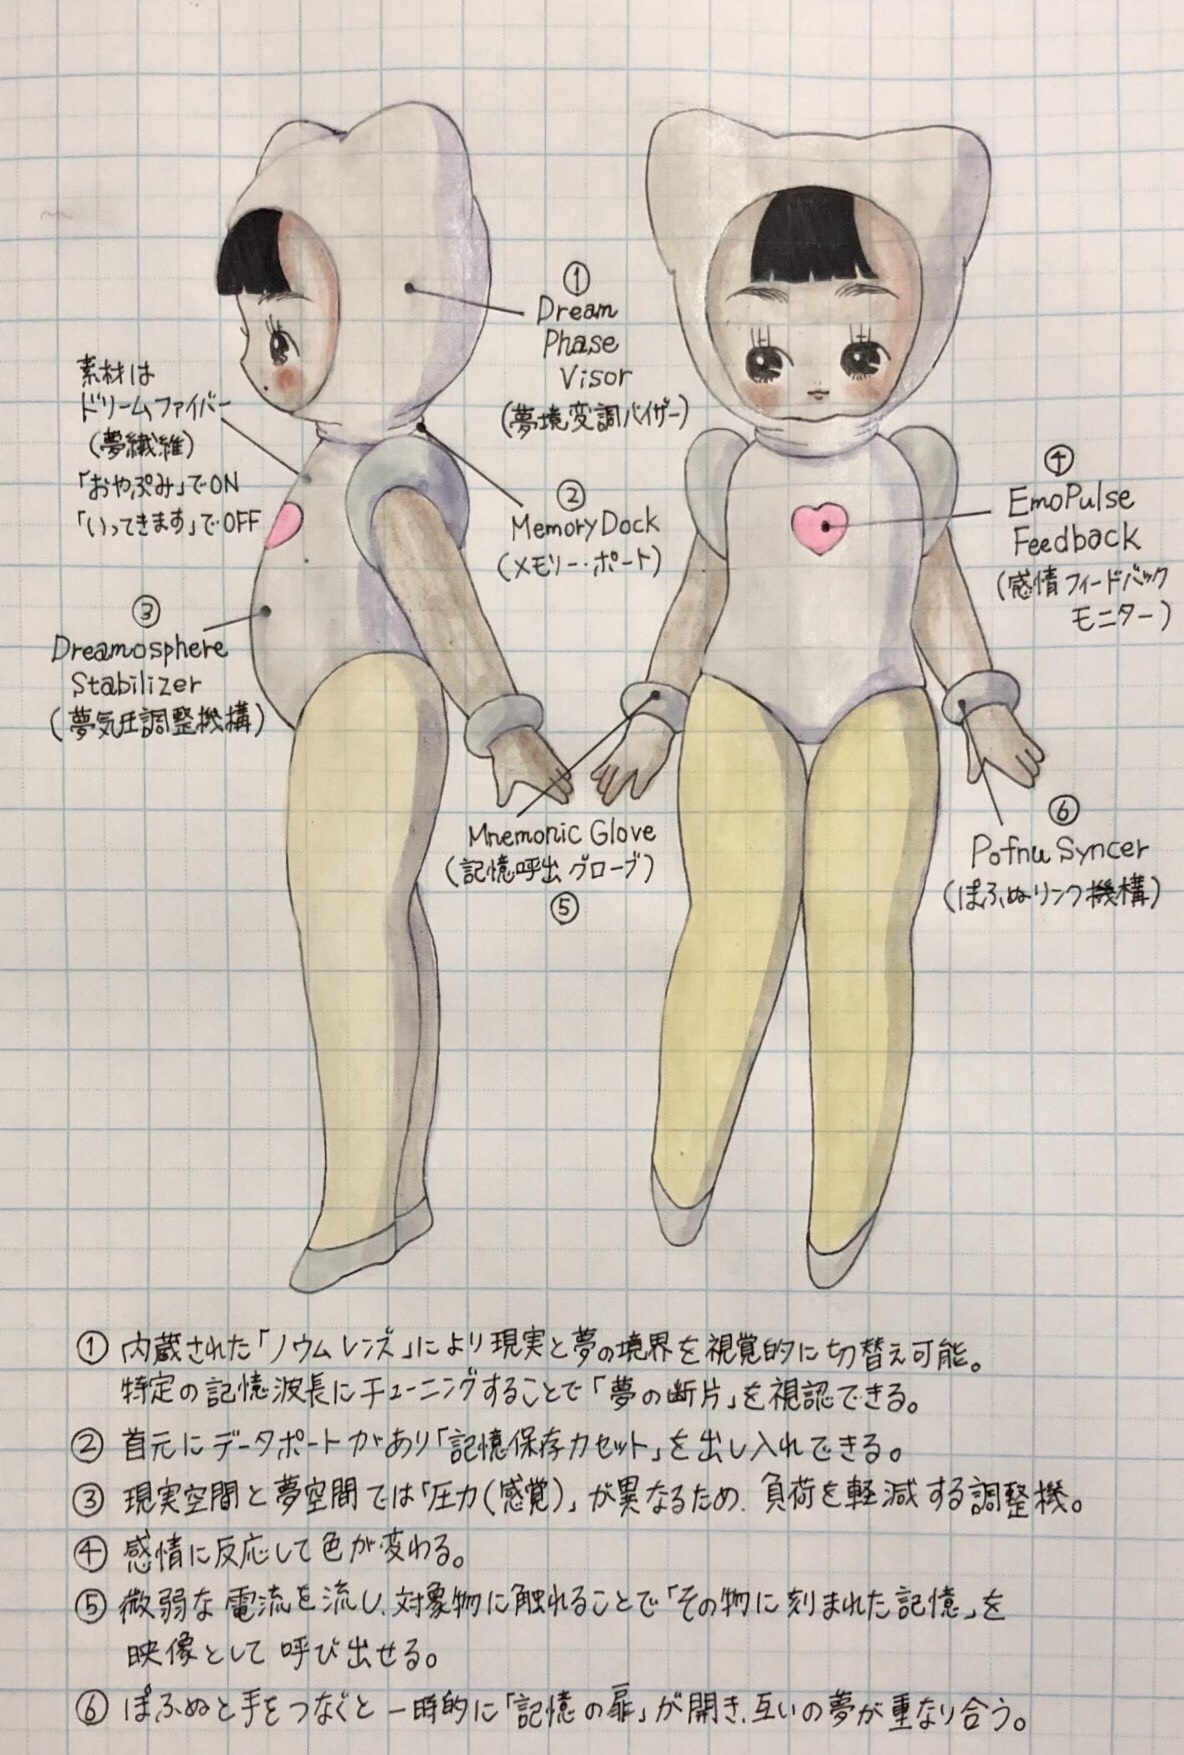 ①
Dream
Phase
Visor
(夢境変調バイザー)
素材は
ドリームファイバー
(夢繊維)
「おやぷみ」でON
「いってきます」でOFF
②
Memory Dock
(メモリー・ポート)
③
Dreamosphere
Stabilizer
(夢気圧調整機構)
④
EmoPulse
Feedback
(感情フィードバック
モニター)
Mnemonic Glove
(記憶呼出グローブ)
⑤
⑥
Pofnu Syncer
(ぽふぬリンク機構)
① 内蔵された「ノウムレンズ」により現実と夢の境界を視覚的に切替え可能。
特定の記憶波長にチューニングすることで「夢の断片」を視認できる。
② 首元にデータポートがあり「記憶保存カセット」を出し入れできる。
③ 現実空間と夢空間では「圧力(感覚)」が異なるため、負荷を軽減する調整機。
④ 感情に反応して色が変わる。
⑤ 微弱な電流を流し、対象物に触れることで「その物に刻まれた記憶」を
映像として呼び出せる。
⑥ ぽふぬと手をつなぐと一時的に「記憶の扉」が開き、互いの夢が重なり合う。